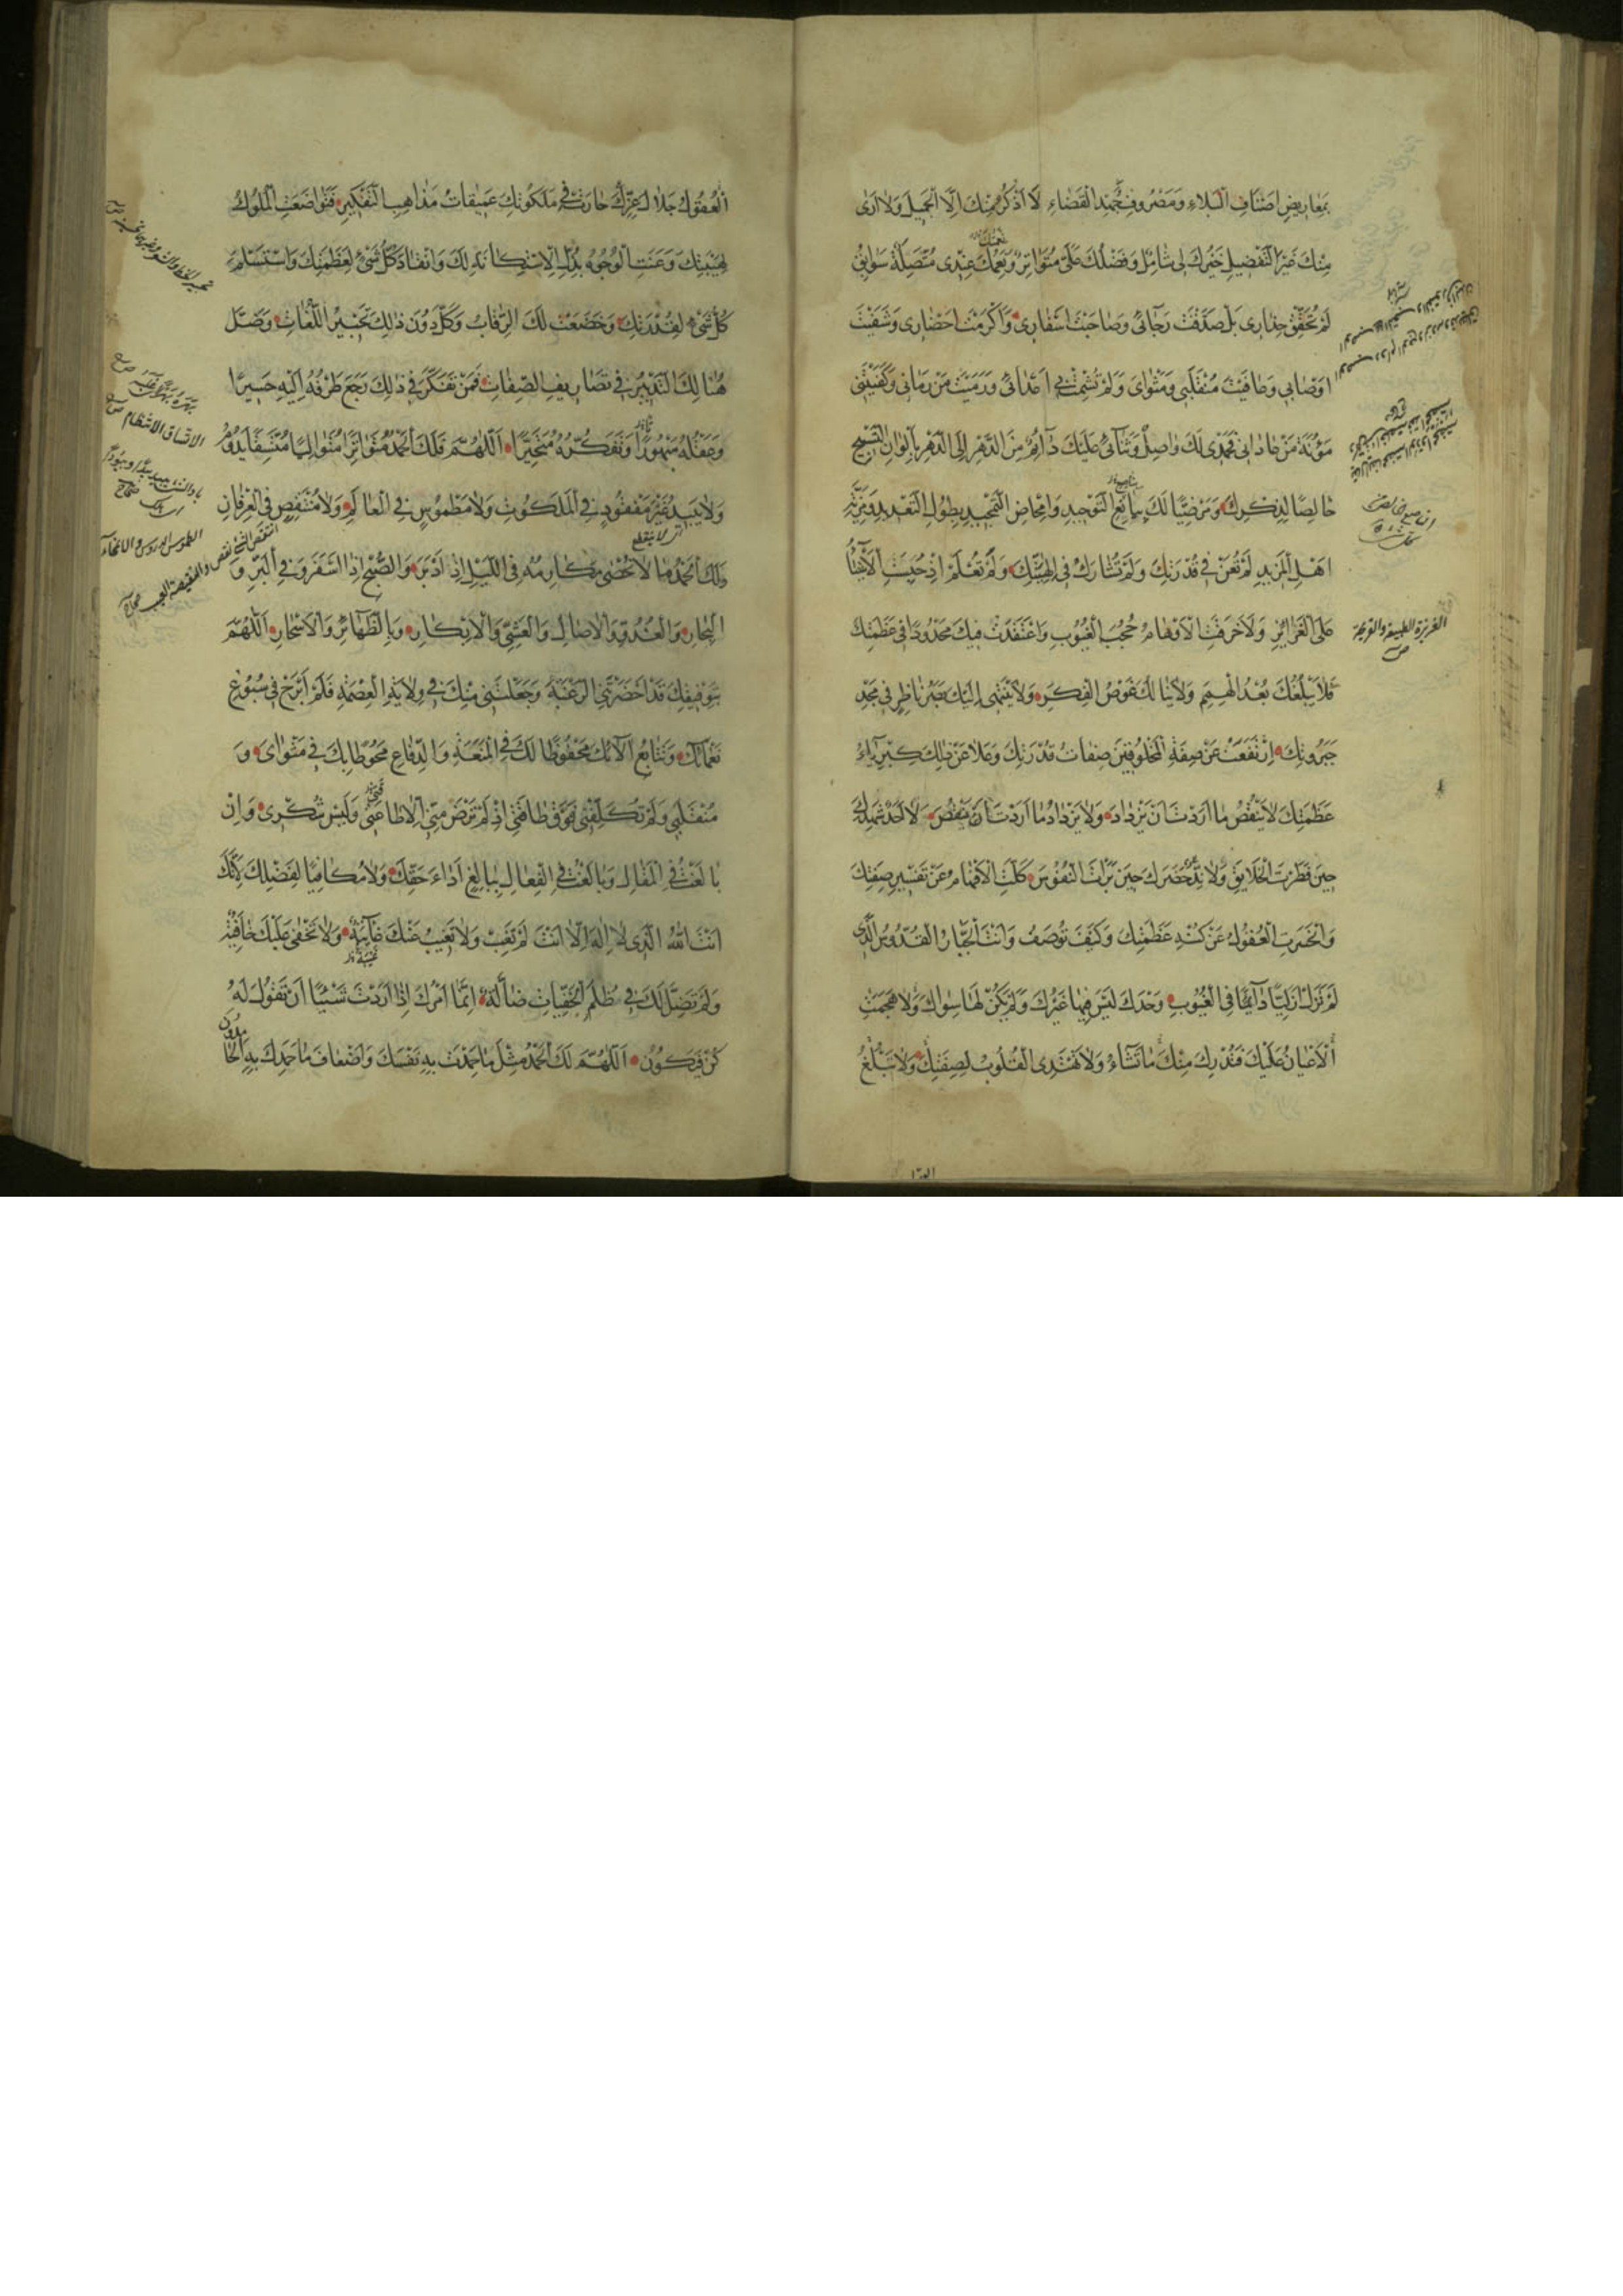 بِمَعَارِيضِ اَصْنَافِ الْبَلَاءِ وَمَصْرُوفِ جُهْدِ الْقَضَاءِ لَا اَذْكُرُ مِنْكَ اِلَّا الْجَمِيلَ وَلَا اَرٰى
مِنْكَ غَيْرَ التَّفْضِيلِ خَيْرُكَ لِى شَامِلٌ وَفَضْلُكَ عَلَىَّ مُتَوَاتِرٌ وَنِعَمُكَ عِنْدِى مُتَّصِلَةٌ سَوَابِقُ
لَمْ تُحَقِّقْ حِذَارِى بَلْ صَدَّقْتَ رَجَائِى وَصَاحَبْتَ اَسْفَارِى وَاَكْرَمْتَ اَحْضَارِى وَشَفَيْتَ
اَوْصَابِى وَعَافَيْتَ مُنْقَلَبِى وَمَثْوَاىَ وَلَمْ تُشْمِتْ بِى اَعْدَائِى وَرَمَيْتَ مَنْ رَمَانِى وَكَفَيْتَنِى
مَؤُنَةَ مَنْ عَادَانِى فَحَمْدِى لَكَ وَاصِلٌ وَثَنَائِى عَلَيْكَ دَآئِمٌ مِنَ الدَّهْرِ اِلَى الدَّهْرِ بِاَلْوَانِ التَّسْبِيحِ
خَالِصًا لِذِكْرِكَ وَمَرْضِيًّا لَكَ التَّوْحِيدِ وَاِمْحَاضِ التَّمْجِيدِ بِطُولِ التَّعْدِيدِ وَمَزِيَّةِ
اَهْلِ الْمَزِيدِ لَمْ تُعَنْ فِى قُدْرَتِكَ وَلَمْ تُشَارَكْ فِى اِلٰهِيَّتِكَ وَلَمْ تُعْلَمْ اِذْ حَبَسْتَ الْاَشْيَاءَ
عَلَى الْغَرَائِزِ وَلَا خَرَقَتِ الْاَوْهَامُ حُجُبَ الْغُيُوبِ وَاعْتَقَدَتْ فِيكَ مَحْدُودًا فِى عَظَمَتِكَ
فَلَا يَبْلُغُكَ بُعْدُ الْهِمَمِ وَلَا يَنَالُكَ غَوْصُ الْفِكَرِ وَلَا يَنْتَهِى اِلَيْكَ بَصَرُ نَاظِرٍ فِى مَجْدِ
جَبَرُوتِكَ اِرْتَفَعَتْ عَنْ صِفَةِ الْمَخْلُوقِينَ صِفَاتُ قُدْرَتِكَ وَعَلَا عَنْ ذٰلِكَ كِبْرِيَاءُ
عَظَمَتِكَ لَا يَنْقُصُ مَا اَرَدْتَ اَنْ يَزْدَادَ وَلَا يَزْدَادُ مَا اَرَدْتَ اَنْ يَنْقُصَ لَا اَحَدٌ شَهِدَكَ
حِينَ فَطَرْتَ الْخَلَايِقَ وَلَا نِدٌّ حَضَرَكَ حِينَ بَرَأْتَ النُّفُوسَ كَلَّتِ الْاَفْهَامُ عَنْ تَفْسِيرِ صِفَتِكَ
وَانْحَسَرَتِ الْعُقُولُ عَنْ كُنْهِ عَظَمَتِكَ وَكَيْفَ تُوصَفُ وَاَنْتَ الْجَبَّارُ الْقُدُّوسُ الَّذِى
لَمْ تَزَلْ اَزَلِيًّا دَآئِمًا فِى الْغُيُوبِ وَحْدَكَ لَيْسَ فِيهَا غَيْرُكَ وَلَمْ يَكُنْ لَهَا سِوَاكَ وَلَا هَجَمَتِ
الْاَعْيَانُ عَلَيْكَ فَتُدْرِكَ مِنْكَ مَا تَشَاءُ وَلَا تَهْتَدِى الْقُلُوبُ لِصِفَتِكَ وَلَا تَبْلُغُ
الغريزة الطبيعة والقريحة
الْعُقُولُ جَلَالَ عِزِّكَ حَارَتْ فِى مَلَكُوتِكَ عَمِيقَاتُ مَذَاهِبِ التَّفْكِيرِ فَتَوَاضَعَتِ الْمُلُوكُ
لِهَيْبَتِكَ وَعَنَتِ الْوُجُوهُ بِذُلِّ الْاِسْتِكَانَةِ لَكَ وَانْقَادَ كُلُّ شَىْءٍ لِعَظَمَتِكَ وَاسْتَسْلَمَ
كُلُّ شَىْءٍ لِقُدْرَتِكَ وَخَضَعَتْ لَكَ الرِّقَابُ وَكَلَّ دُونَ ذٰلِكَ تَحْبِيرُ اللُّغَاتِ وَضَلَّ
هُنَالِكَ التَّدْبِيرُ فِى تَصَارِيفِ الصِّفَاتِ فَمَنْ تَفَكَّرَ فِى ذٰلِكَ رَجَعَ طَرْفُهُ اِلَيْهِ حَسِيرًا
وَعَقْلُهُ مَبْهُورًا وَتَفَكُّرُهُ مُتَحَيِّرًا اَللّٰهُمَّ فَلَكَ الْحَمْدُ مُتَوَاتِرًا مُتَوَالِيًا مُتَّسِقًا يَدُومُ
وَلَا يَبِيدُ غَيْرَ مَفْقُودٍ فِى الْمَلَكُوتِ وَلَا مَطْمُوسٍ فِى الْعَالَمِ وَلَا مُنْتَقَصٍ فِى الْعِرْفَانِ
وَلَكَ الْحَمْدُ مَا لَا تُحْصٰى مَكَارِمُهُ فِى اللَّيْلِ اِذَا اَدْبَرَ وَالصُّبْحِ اِذَا اَسْفَرَ وَفِى الْبَرِّ وَ
الْبِحَارِ وَالْغُدُوِّ وَالْاٰصَالِ وَالْعَشِىِّ وَالْاِبْكَارِ وَبِالظَّهَائِرِ وَالْاَسْحَارِ اَللّٰهُمَّ
بِتَوْفِيقِكَ قَدْ اَحْضَرْتَنِى الرَّغْبَةَ وَجَعَلْتَنِى مِنْكَ فِى وِلَايَةِ الْعِصْمَةِ فَلَمْ اَبْرَحْ فِى سُبُوغِ
نَعْمَائِكَ وَتَتَابُعِ اٰلَائِكَ مَحْفُوظًا لَكَ فِى الْمَنَعَةِ وَالدِّفَاعِ مَحُوطًا بِكَ فِى مَثْوَاىَ وَ
مُنْقَلَبِى وَلَمْ تُكَلِّفْنِى فَوْقَ طَاقَتِى اِذْ لَمْ تَرْضَ مِنِّى اِلَّا طَاعَتِى وَلَيْسَ شُكْرِى وَاِنْ
بَالَغْتُ فِى الْمَقَالِ وَبَالَغْتُ فِى الْفِعَالِ بِبَالِغِ اَدَاءِ حَقِّكَ وَلَا مُكَافِيًا لِفَضْلِكَ لِاَنَّكَ
اَنْتَ اللّٰهُ الَّذِى لَا اِلٰهَ اِلَّا اَنْتَ لَمْ تَغِبْ وَلَا تَغِيبُ عَنْكَ غَآئِبَةٌ وَلَا تَخْفٰى عَلَيْكَ خَافِيَةٌ
وَلَمْ تَضِلَّ لَكَ فِى ظُلَمِ الْخَفِيَّاتِ ضَالَّةٌ اِنَّمَا اَمْرُكَ اِذَا اَرَدْتَ شَيْئًا اَنْ تَقُولَ لَهُ
كُنْ فَيَكُونُ اَللّٰهُمَّ لَكَ الْحَمْدُ مِثْلَ مَا حَمِدْتَ بِهِ نَفْسَكَ وَاَضْعَافَ مَا حَمِدَكَ بِهِ الْحَامِدُونَ
الاتساق الانتظام
الطموس الدروس والانمحاء